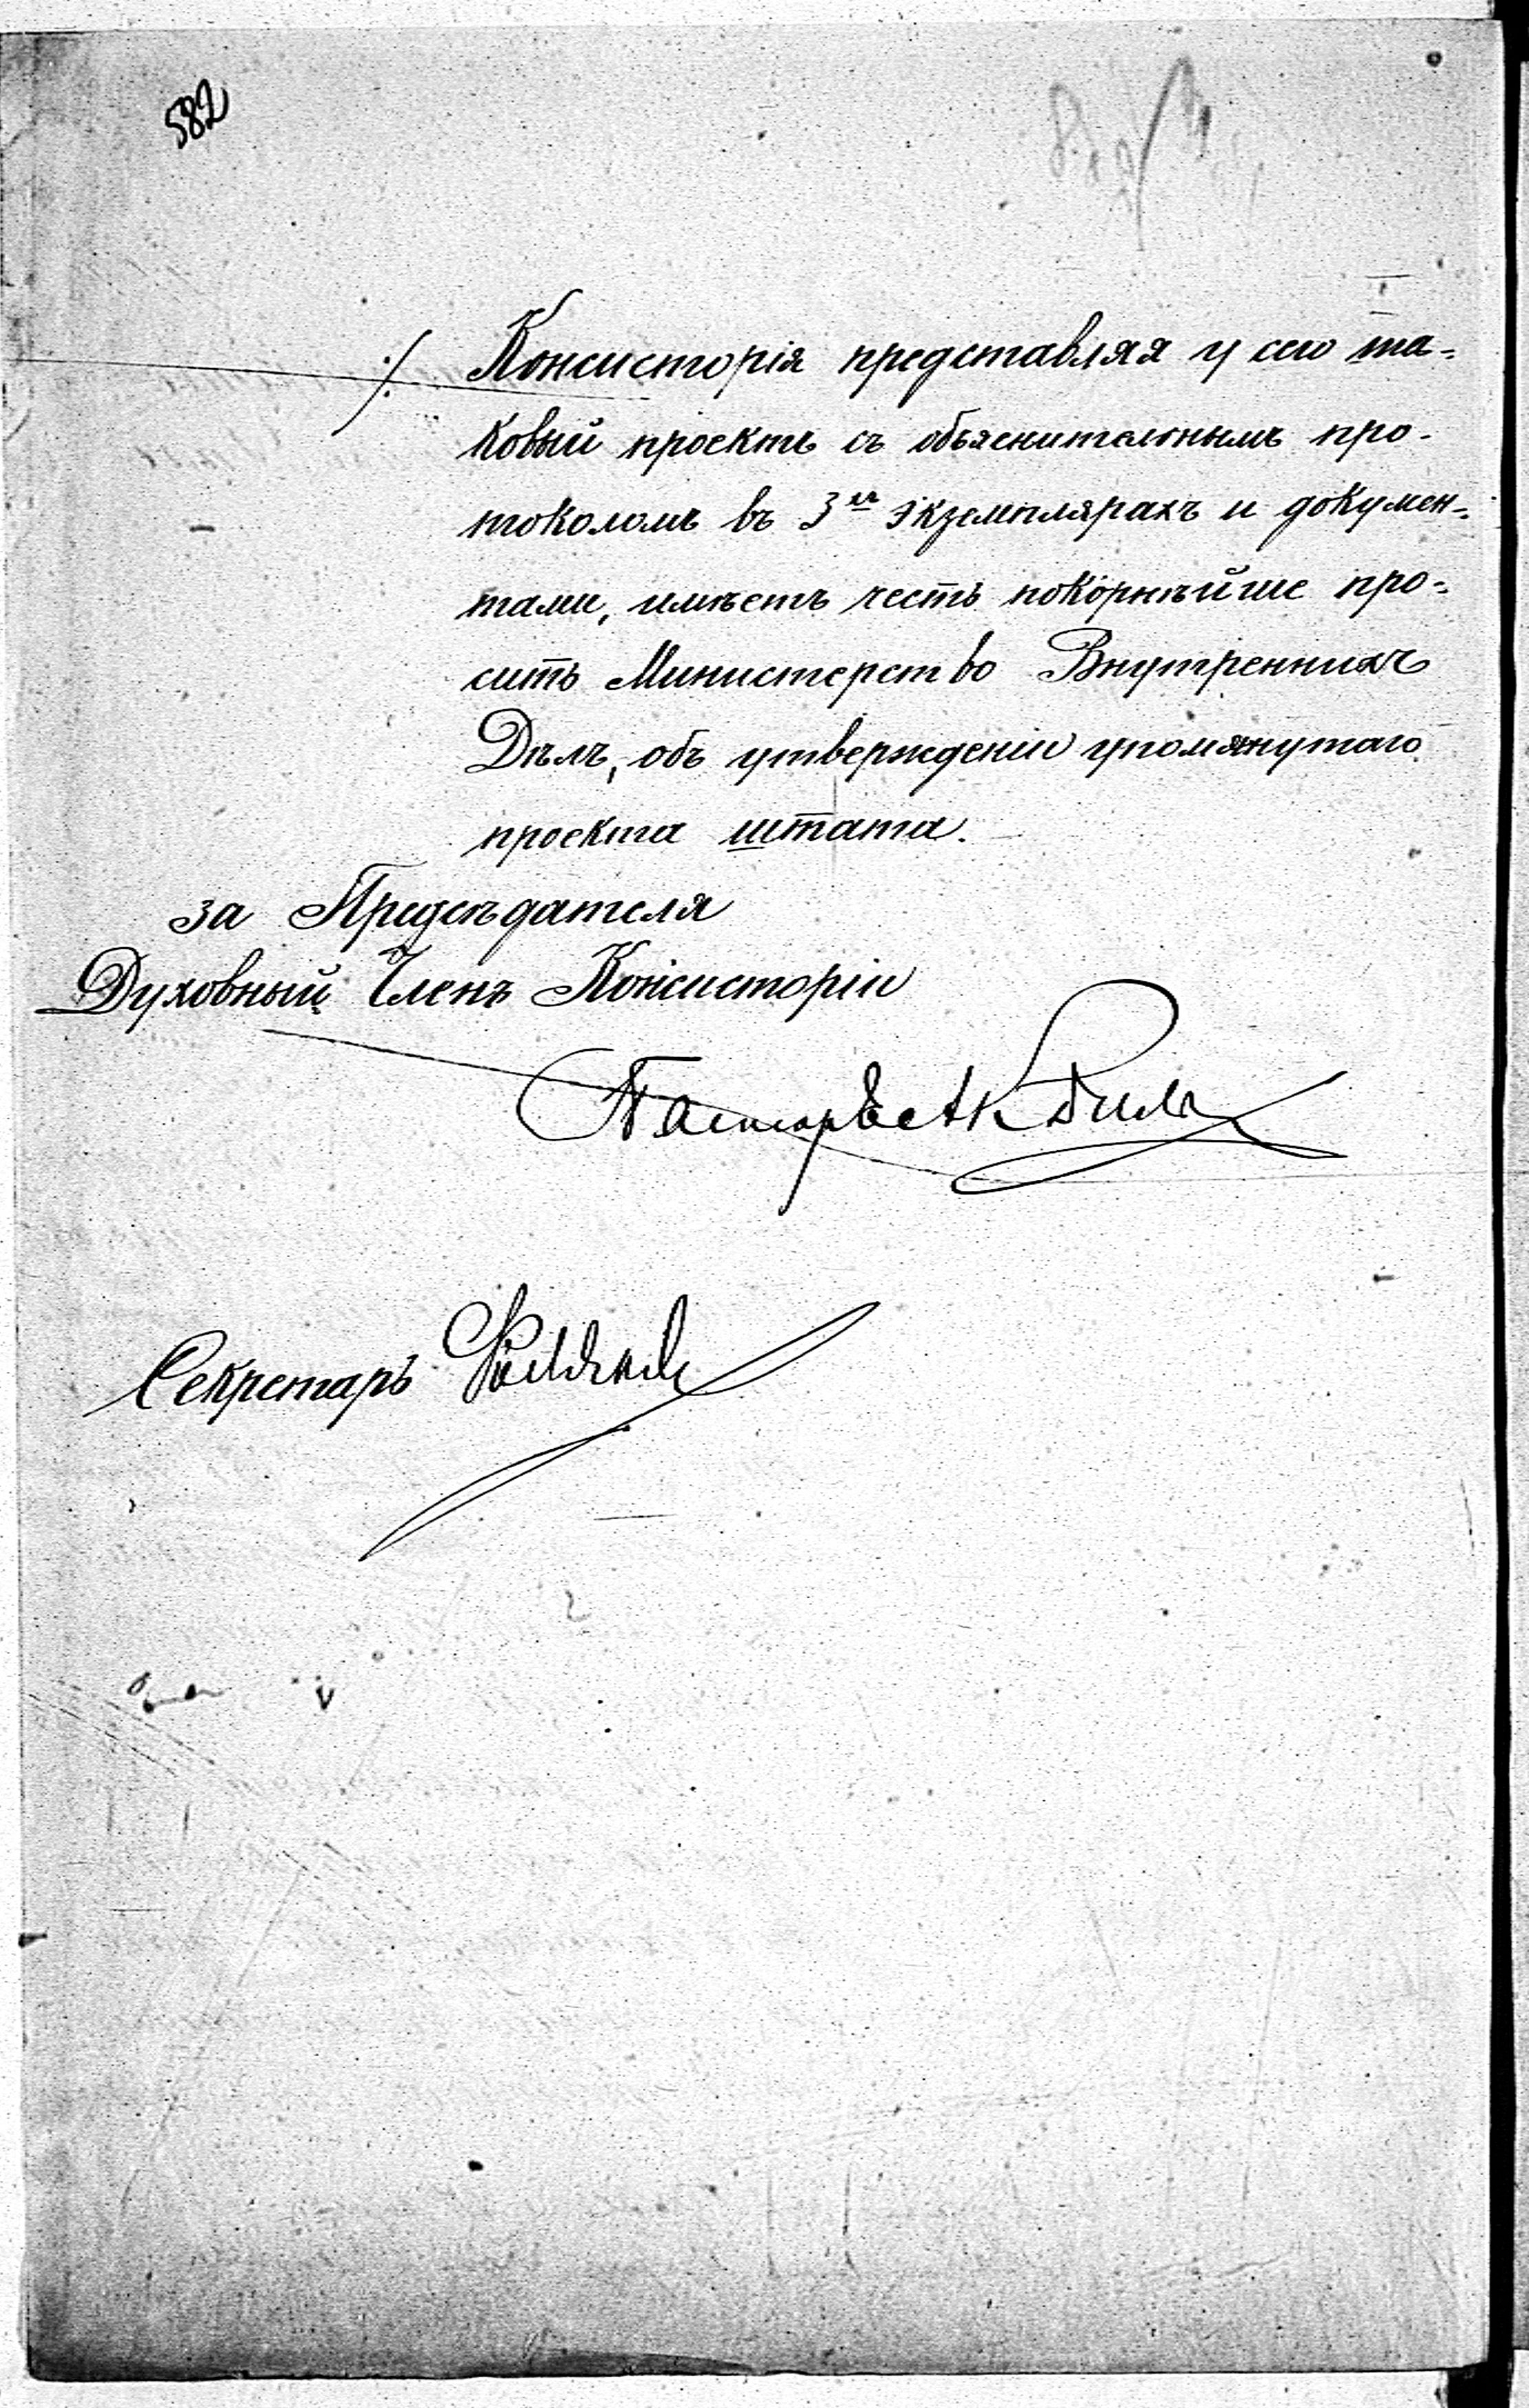 582
Консисторія представляя у сего та-
ковый проектъ съ объяснительнымъ про-
токоломъ въ 3хъ экземплярахъ и докумен-
тами, имѣетъ честь покорнѣйше про-
сить Министерство Внутреннихъ
Дѣлъ, объ утвержденіи упомянутаго
проекта штата.
за Предсѣдателя
Духовный Членъ Консисторіи
Пасторъ
Секретарь